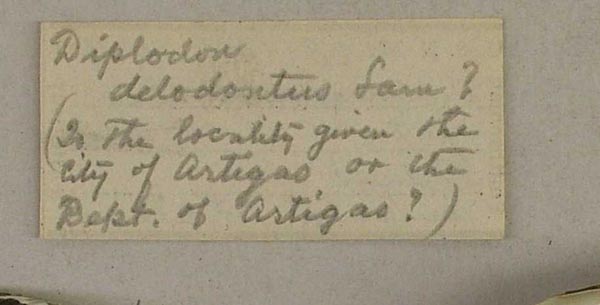 Diplodon
delodontus Lam?
(Is the locality given the
city of Artigas or the
Dept. of Artigas?)